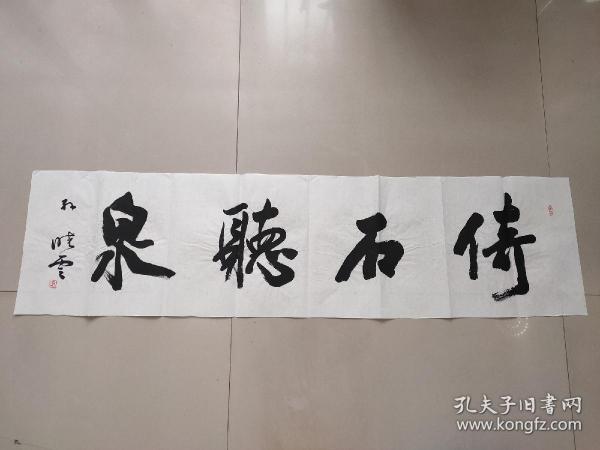 倚石聽泉
孙晓云
孔夫子旧書网
www.kongfz.com